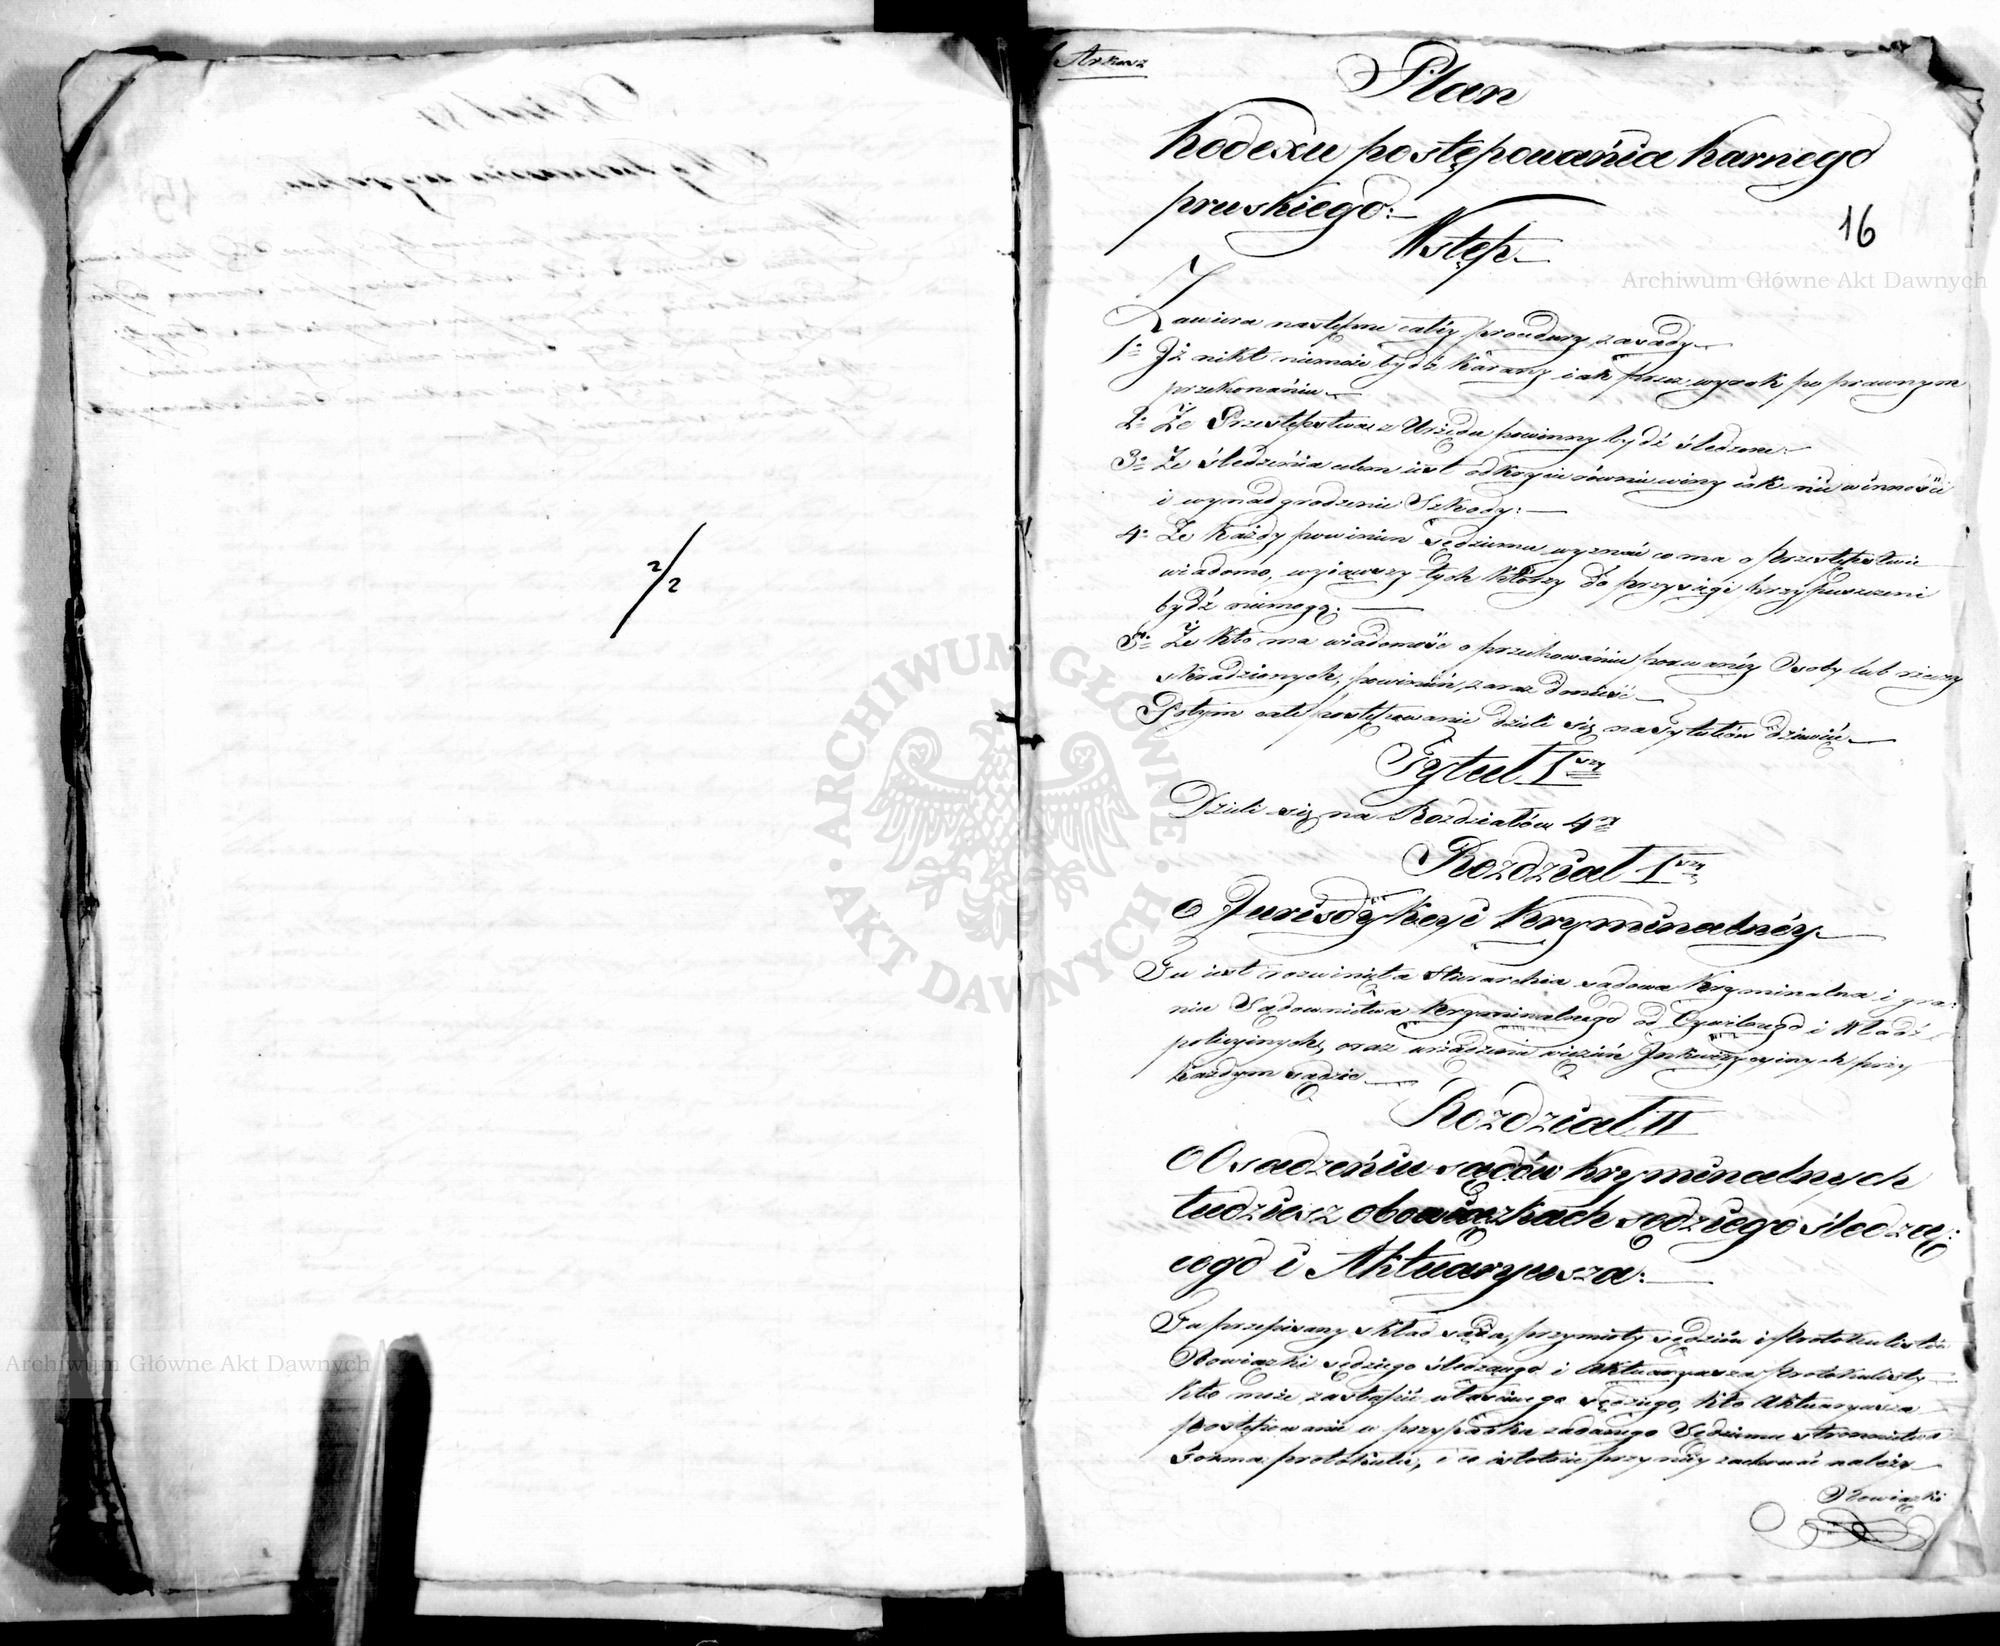 2/2
Arkusz
Plan
Kodexu postępowania karnego
pruskiego:
16
Wstęp
Zawiera następne całéy procedury zasady
1o Iż nikt niemoże bydź karany iak przez wyrok po prawnym
przekonaniu
2o Że Przestępstwa z Urzędu powinny bydź śledzone
3o Że śledzenia celem iest odkrycie równie winy iak niewinności
i wynadgrodzenie Szkody:
4o Że każdy powinien Sędziemu wyznać co ma o przestępstwie
wiadomo, wyiąwszy tych którzy do przysięgi przypuszczeni
bydź niemogą:
5o Że kto ma wiadomość o przechowaniu porwanéy Osoby lub rzeczy
skradzionych, powinien zaraz donieść
Potym całe postępowanie dzieli się na tytułów dziewięć
Tytuł Iszy
Dzieli się na Rozdziałów 4ry
Rozdział Iszy
O Jurisdykcyi Kryminalnéy
Tu iest rozwinięta Hierarchia sądowa Kryminalna i gra:
nice Sądownictwa Kryminalnego od Cywilnego i Władz
policyinych, oraz urządzenie więzień Inkwizycyinych przy
każdym sądzie
Rozdział II
O Osadzeniu sądów kryminalnych
tudziesz obowiązkach sędziego śledzą:
cego i Aktuaryusza:
Tu przepisany skład sądu, przymioty sędziów i Protokulistów
Obowiązki sędziego śledzącego i Aktuaryusza Protokulisty
Kto może zastąpić właściwego sędziego, kto Aktuaryusza
Postępowanie w przypadku zadanego Sędziemu stronnictwa
Forma protokułu, i co istotnie przy niéy zachować należy
Obowiązki
Archiwum Główne Akt Dawnych
Archiwum Główne Akt Dawnych
ARCHIWUM GŁÓWNE AKT DAWNYCH